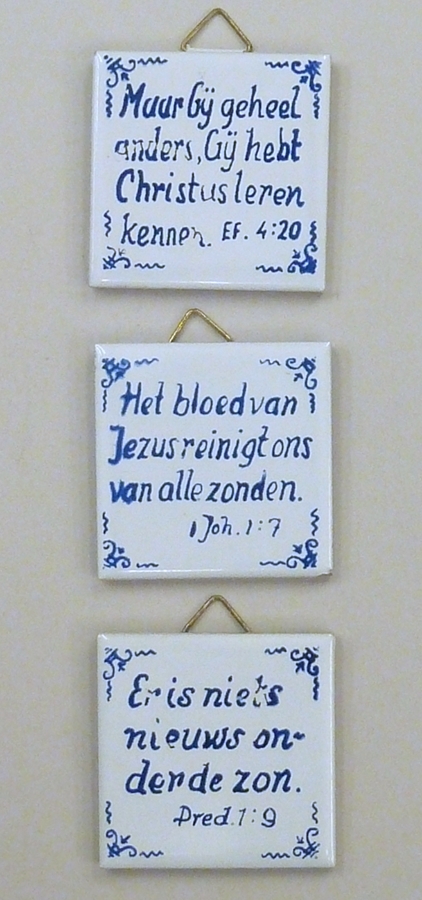 Maar Gÿ geheel
anders, Gÿ hebt
Christus leren
kennen. EF. 4:20
Het bloed van
Jezus reinigt ons
van alle zonden.
1 Joh. 1:7
Er is niets
nieuws on-
der de zon.
Pred. 1:9